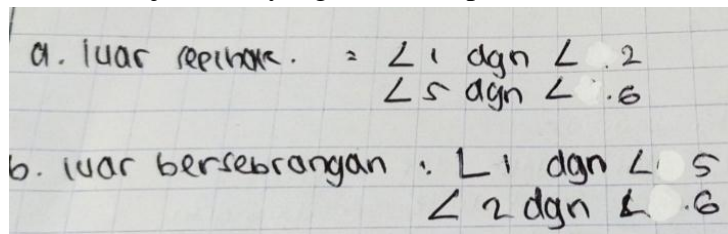 a. luar sepihak. = ∠1 dgn ∠ .2
∠5 dgn ∠ .6
b. luar bersebrangan : ∠1 dgn ∠ 5
∠2 dgn ∠ .6